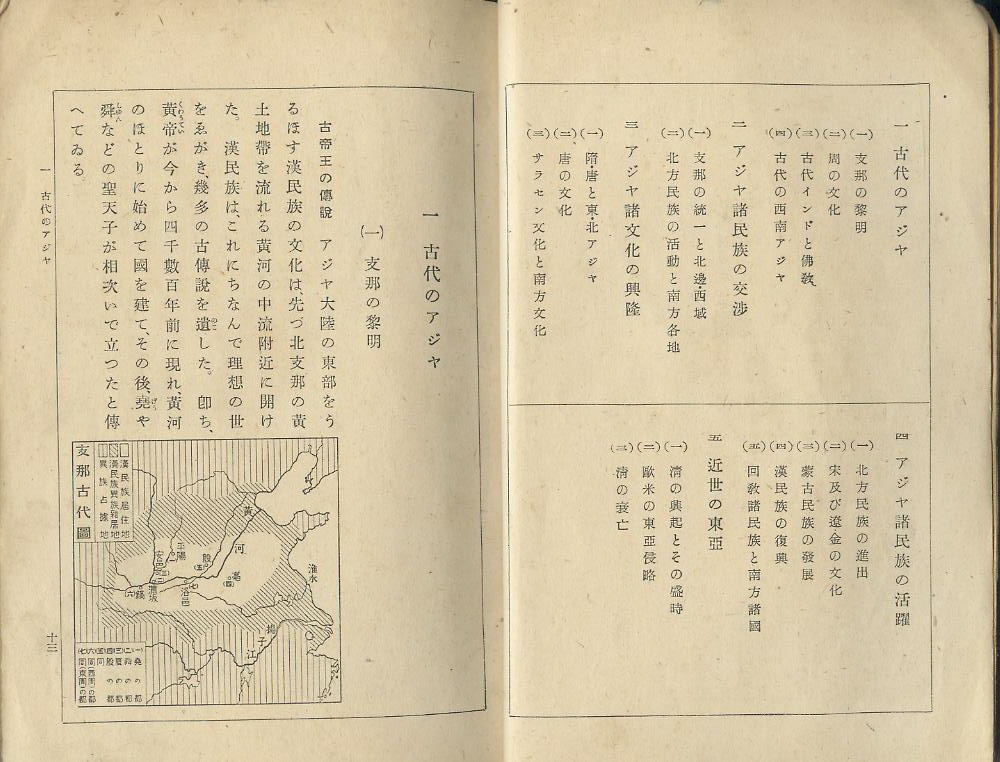 一 古代のアジヤ
(一) 支那の黎明
(二) 周の文化
(三) 古代インドと佛敎
(四) 古代の西南アジヤ
二 アジヤ諸民族の交涉
(一) 支那の統一と北邊・西域
(二) 北方民族の活動と南方各地
三 アジヤ諸文化の興隆
(一) 隋・唐と東・北アジヤ
(二) 唐の文化
(三) サラセン文化と南方文化
四 アジヤ諸民族の活躍
(一) 北方民族の進出
(二) 宋及び遼・金の文化
(三) 蒙古民族の發展
(四) 漢民族の復興
(五) 回敎諸民族と南方諸國
五 近世の東亞
(一) 淸の興起とその盛時
(二) 歐米の東亞侵略
(三) 淸の衰亡
一 古代のアジヤ
(一) 支那の黎明
古帝王の傳說 アジヤ大陸の東部をう
るほす漢民族の文化は先づ北支那の黃
土地帶を流れる黃河の中流附近に開け
た。漢民族は、これにちなんで理想の世
をゑがき、幾多の古傳說を遺のこした。卽ち、
黃帝くわうていが今から四千數百年前に現れ、黃河
のほとりに始めて國を建て、その後、堯げうや
舜しゆんなどの聖天子が相次いで立つたと傳
へてゐる。
支那古代圖
漢民族居住地
漢民族異族雜居地
異族占據地
黃河
淮水
揚子江
平陽
安邑
蒲坂
殷
亳
洛邑
鎬
(一) 堯の都
(二) 舜の都
(三) 夏の都
(四) 殷の都
(五) 同
(六) 周(西周)の都
(七) 周(東周)の都
一 古代のアジヤ
十三